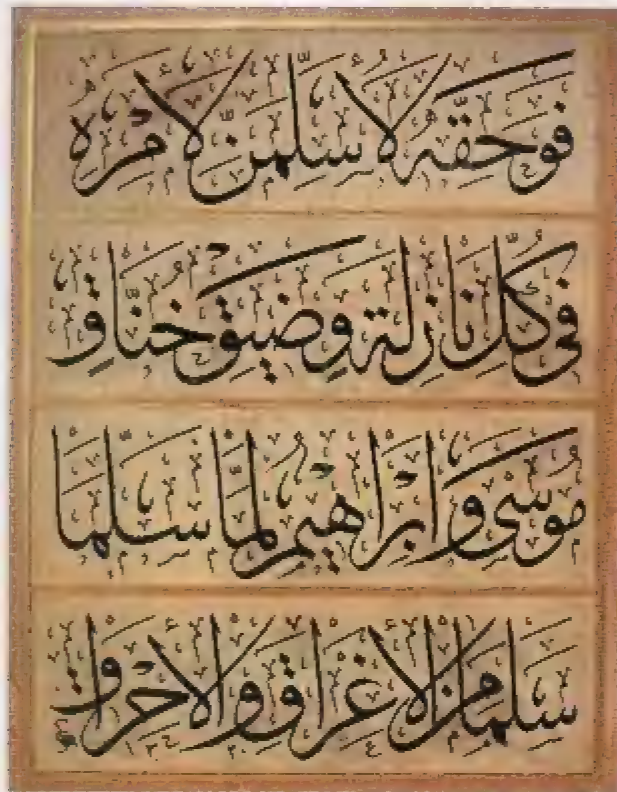 فوحقه لأسلمن لأمره
في كل نازلة وضيق خناق
موسى وابراهيم لما سلما
سلما من الاغراق والاحراق